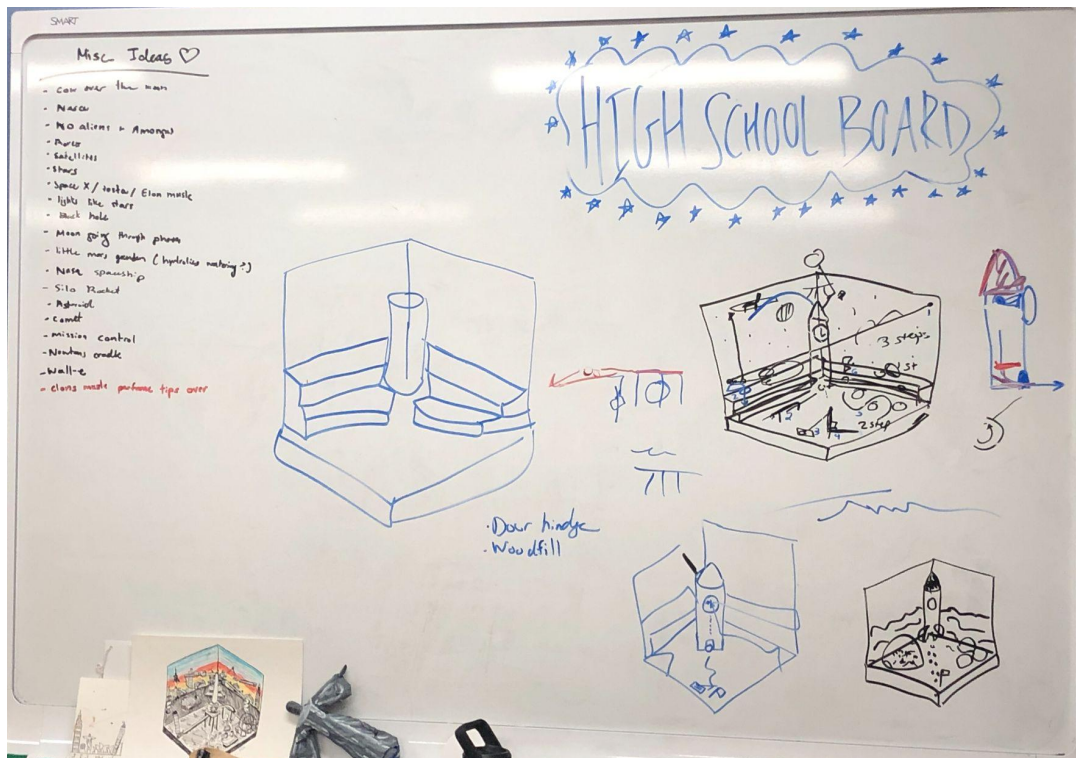 SMART
Misc Ideas ♡
- Cow over the moon
- Narco
- NO aliens + Amongus
- Satellites
- Stars
- Space X / tesla / Elon musk
- lights like stars
- Black hole
- Moon going through phases
- little mars garden (hydralics watering?)
- Nasa spaceship
- Silo Rocket
- Asteroid
- Comet
- mission control
- Newtons cradle
- Wall-e
- elons musk perfume tips over
HIGH SCHOOL BOARD
3 steps
1st
2 step
· Dowr hindge
· Woodfill